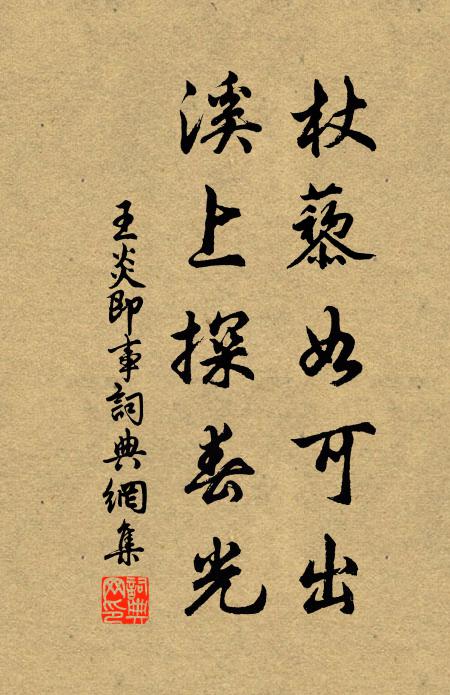 杖藜如可出
溪上探春光
王炎即事詞典網集
詞典网印